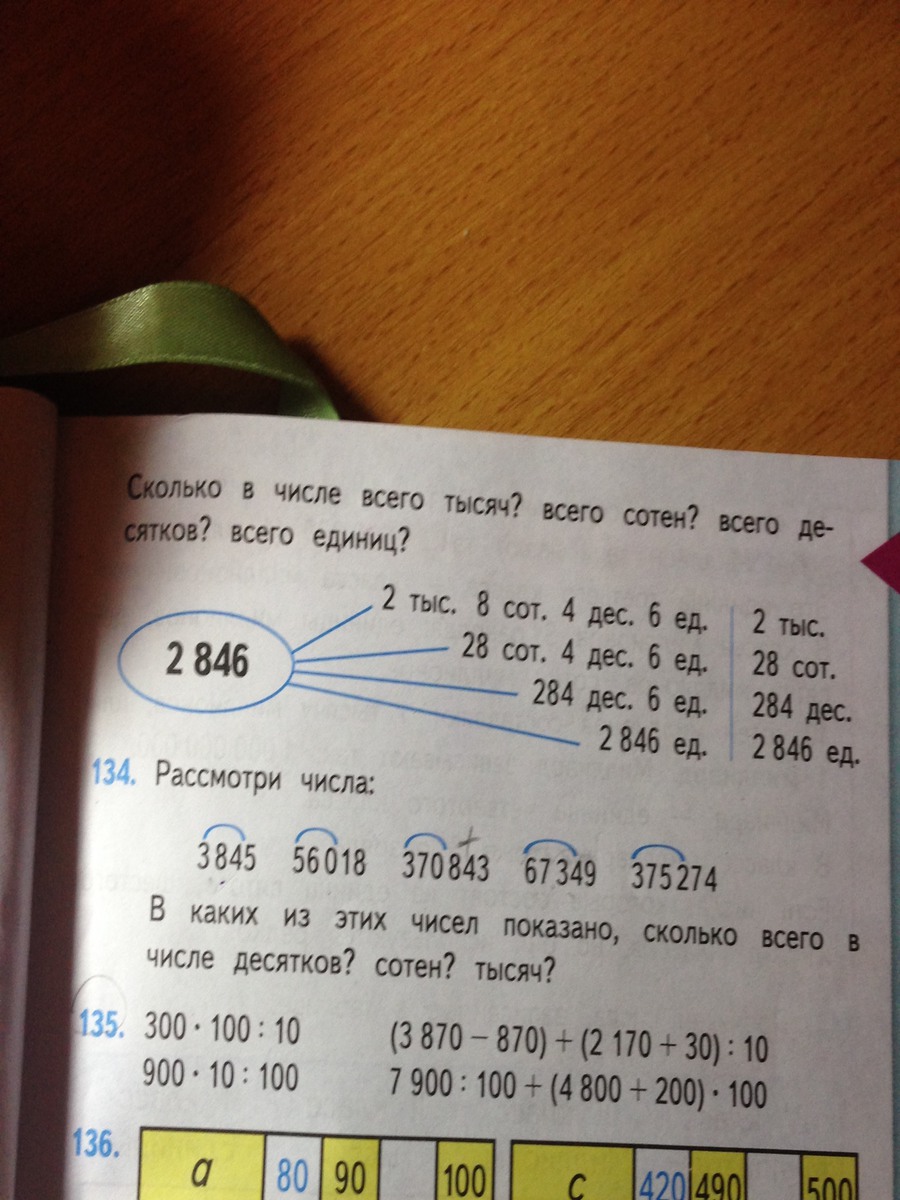 Сколько в числе всего тысяч? всего сотен? всего де-
сятков? всего единиц?
2 846
2 тыс. 8 сот. 4 дес. 6 ед. 2 тыс.
28 сот. 4 дес. 6 ед. 28 сот.
284 дес. 6 ед. 284 дес.
2 846 ед. 2 846 ед.
134. Рассмотри числа:
3845 56018 370843 67349 375274
В каких из этих чисел показано, сколько всего в
числе десятков? сотен? тысяч?
135. 300 · 100 : 10 (3 870 − 870) + (2 170 + 30) : 10
900 · 10 : 100 7 900 : 100 + (4 800 + 200) · 100
136. a 80 90 100 c 420 490 500